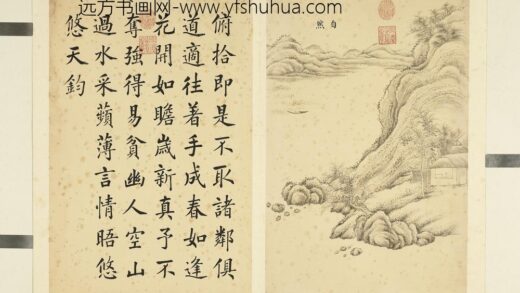 远方书画网-www.yfshuhua.com
自然
俯拾即是不取諸鄰俱
道適往着手成春如逢
花開如瞻歲新真予不
奪強得易貧幽人空山
過水采蘋薄言情晤悠
悠天鈞